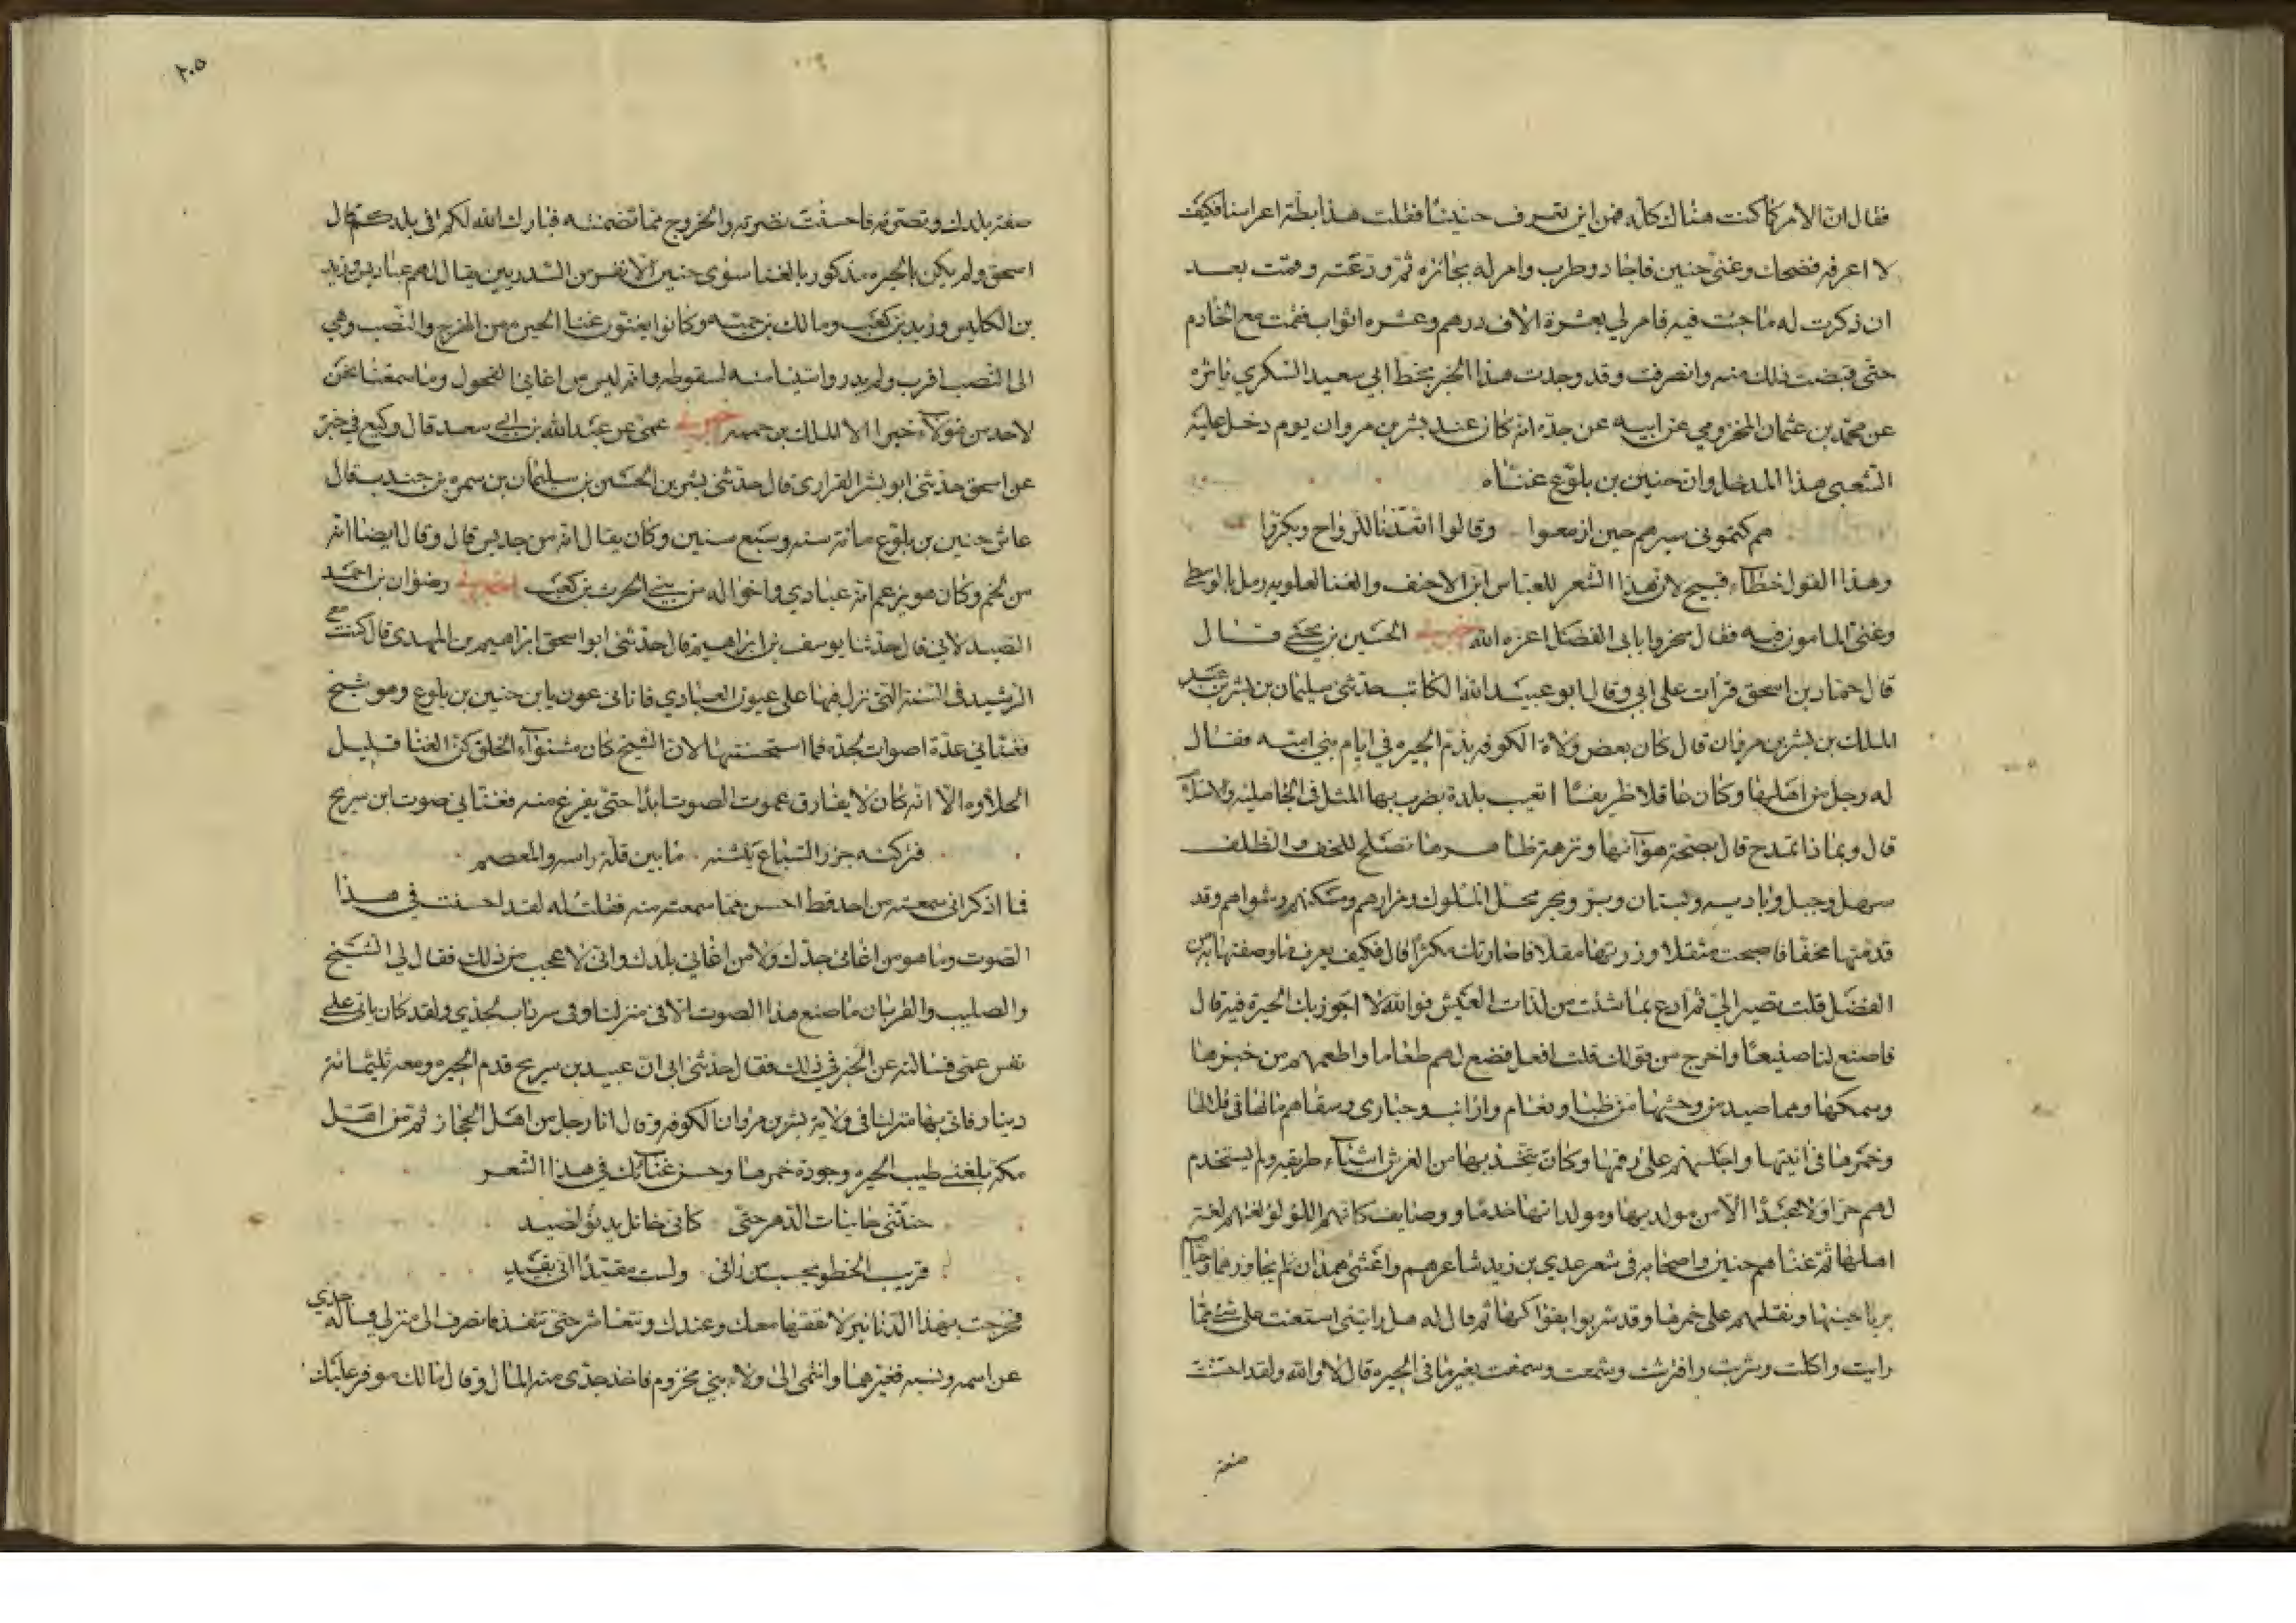 فقال ان الامر كما كنت هناك كله فمن اين تعرف حنينًا فقلت هذا بطة اعراسنا فكيف
لا اعرفه فضحك وغنى حنين فاجاد وطرب وامر له بجائزه ثم ودعته وقمت بعد
ان ذكرت له ما جئت فيه فامر لي بعشرة الاف درهم وعشره اثواب فقمت مع الخادم
حتى قبضت ذلك منه وانصرفت وقد وجدت هذا الخبر بخط ابي سعيد السكري ياثره
عن محمد بن عثمان المخزومي عن ابيه عن جده انه كان عند بشر بن مروان يوم دخل عليه
الشعبي هذا المدخل وان حنين بن بلوع غناه
هم كتموني سيرهم حين ازمعوا وقالوا اتعدنا للرواح وبكروا
وهذا القول خطاء قبيح لان هذا الشعر للعباس ابن الاحنف والغنا لعلويه رمل بالوسطى
وغنى المامون فيه فقال سخروا بابي الفضل اعزه الله خبرني الحسين بن يحيى قال
قال حماد بن اسحق قرات على ابي وقال ابو عبيد الله الكاتب حدثني سليمان بن بشر بن عبد
الملك بن بشر بن مروان قال كان بعض ولاة الكوفه يذم الحيره في ايام بني اميه فقال
له رجل من اهلها وكان عاقلا ظريفًا اتعيب بلدة يضرب بها المثل في الجاهليه والاسلام
قال وبماذا تمدح قال بصحة هوآئها ونزهة ظاهرها تصلح للخف والظلف
سهل وجبل وباديه وبستان وبر وبحر محل الملوك ومزارهم ومسكنهم ومثواهم وقد
قدمتها مخفًا فاصبحت مثقلا وزرتها مقلا فاصارتك مكثرًا قال فكيف يعرف ما وصفتها به من
الفضل قلت تصير الي ثم ادع بما شئت من لذات العيش فوالله لا اجوز بك الحيرة فيه قال
فاصنع لنا صنيعًا واخرج من قولك قلت افعل فصنع لهم طعاما واطعمهم من خبزها
وسمكها وبما صيد من وحشها من ظبا ونعام وارانب وحبارى وسقاهم ماءها في قلالها
وخمرها في انيتها واجلسهم على رقمها وكان يتخذ بها من الفرش اشيآء طريفه ولم يستخدم
لهم حرا ولا عبدًا الا من مولديها ومولداتها خدمًا ووصايف كانهم اللولو لغتهم لغة
اهلها ثم غناهم حنين واصحابه في شعر عدي بن زيد شاعرهم واعشى همدان لم يجاوزهما وحياهم
برياحينها ونقلهم على خمرها وقد شربوا بفواكهها ثم قال له هل رايتني استعنت على شئ مما
رايت واكلت وشربت وافترشت وشممت وسمعت بغير ما في الحيره قال لا والله ولقد احسنت
صفة
٢٠٥
صفة بلدك ونصرته فاحسنت نصرته والخروج مما تضمنته فبارك الله لكم في بلدكم قال
اسحق ولم يكن بالحيره مذكور بالغنا سوى حنين الا نفر من السدريين يقال لهم عباديس وزيد
بن الكليس وزيد بن كعب ومالك بن حممه وكانوا يغنون غنا الحيره من الهزج والنصب وهي
الى النصب اقرب ولم يدر وا شيئا منه لسقوطه وانه ليس من اغاني الفحول وما سمعنا نحن
لاحد من هولآء خبرا الا لمالك بن حممه خبرني عمى عن عبد الله بن ابي سعد قال وكيع في خبره
عن اسحق حدثني ابو بشر الفزاري قال حدثني بشر بن الحسين بن سليمان بن سمره بن جندب قال
عاش حنين بن بلوع مائة سنه وسبع سنين وكان يقال انه من جديس قال وقال ايضا انه
من لخم وكان هو يزعم انه عبادي واخواله من بني الحرث بن كعب اخبرني رضوان بن احمد
الصيدلاني قال حدثنا يوسف بن ابراهيم قال حدثني ابو اسحق ابراهيم بن المهدي قال كنت مع
الرشيد في السنة التي نزل فيها على عون العبادي فاتاني عون بابن حنين بن بلوع وهو شيخ
فغناني عدة اصوات لجده فما استحسنتها لان الشيخ كان مشوآء الخلق كز الغنا قليل
الحلاوه الا انه كان لا يفارق عموت الصوت ابدًا حتى يفرغ منه فغناني صوت ابن سريج
فتركته جزر السباع ينشنه ما بين قلة راسه والمعصم
فما اذكر اني سمعته من احد قط احسن مما سمعته منه فقلت له لقد احسنت في هذا
الصوت وما هو من اغاني جدك ولا من اغاني بلدك واني لاعجب من ذلك فقال لي الشيخ
والصليب والقربان ما صنع هذا الصوت الا في منزلنا وفي سرداب لجدي ولقد كاد ياتي على
نفس عمى فسالته عن الخبر في ذلك فقال حدثني ابي ان عبيد بن سريج قدم الحيره ومعه ثلثمائة
دينار فاتى بها منزلنا في ولاية بشر بن مروان الكوفه وقال انا رجل من اهل الحجاز ثم من اهل
مكة بلغني طيب الحيره وجودة خمرها وحسن غنآئك في هذا الشعر
حنتني حانيات الدهر حتى كاني خاتل يدنو لصيد
قريب الخطو يحسب من راني ولست مقيدًا اني بقيد
فخرجت بهذا الدنانير لانفقها معك وعندك ونتعاشر حتى تنفد وانصرف الى منزلي فساله جدي
عن اسمه ونسبه فغيرهما وانتمى الى ولاء بني مخزوم فاخذ جدي منه المال وقال مالك موفر عليك